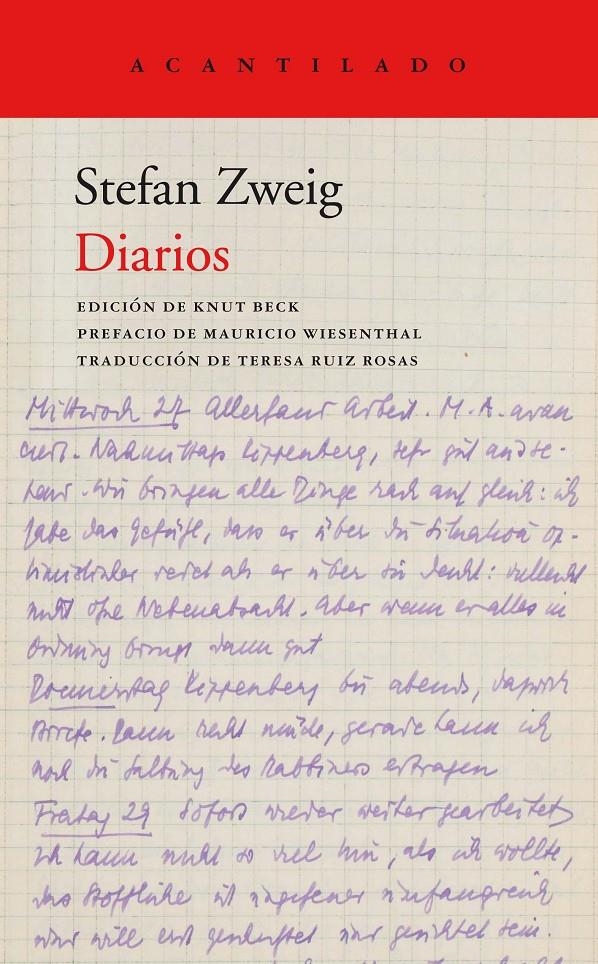 ACANTILADO
Stefan Zweig
Diarios
EDICIÓN DE KNUT BECK
PREFACIO DE MAURICIO WIESENTHAL
TRADUCCIÓN DE TERESA RUIZ ROSAS
Mittwoch 27 Allerhand Arbeit. M. A. avan
ciert. Nachmittags Kippenberg, sehr gut
Wir bringen alle Dinge rasch auf gleich: ich
habe das Gefühl, dass er über die Situation op-
timistischer als er über sie denkt: vielleicht
nicht ohne Nebenabsicht. Aber wenn er alles in
Ordnung bringt dann gut
Donnerstag Kippenberg bis abends,
Briefe. Dann recht müde, gerade kann ich
noch die des Rabbiners ertragen
Freitag 29 Sofort wieder weiter gearbeitet
Ich kann nicht so viel hin, als ich wollte,
das Stoffliche ist ungeheuer umfangreich
und will erst und gesichtet sein.